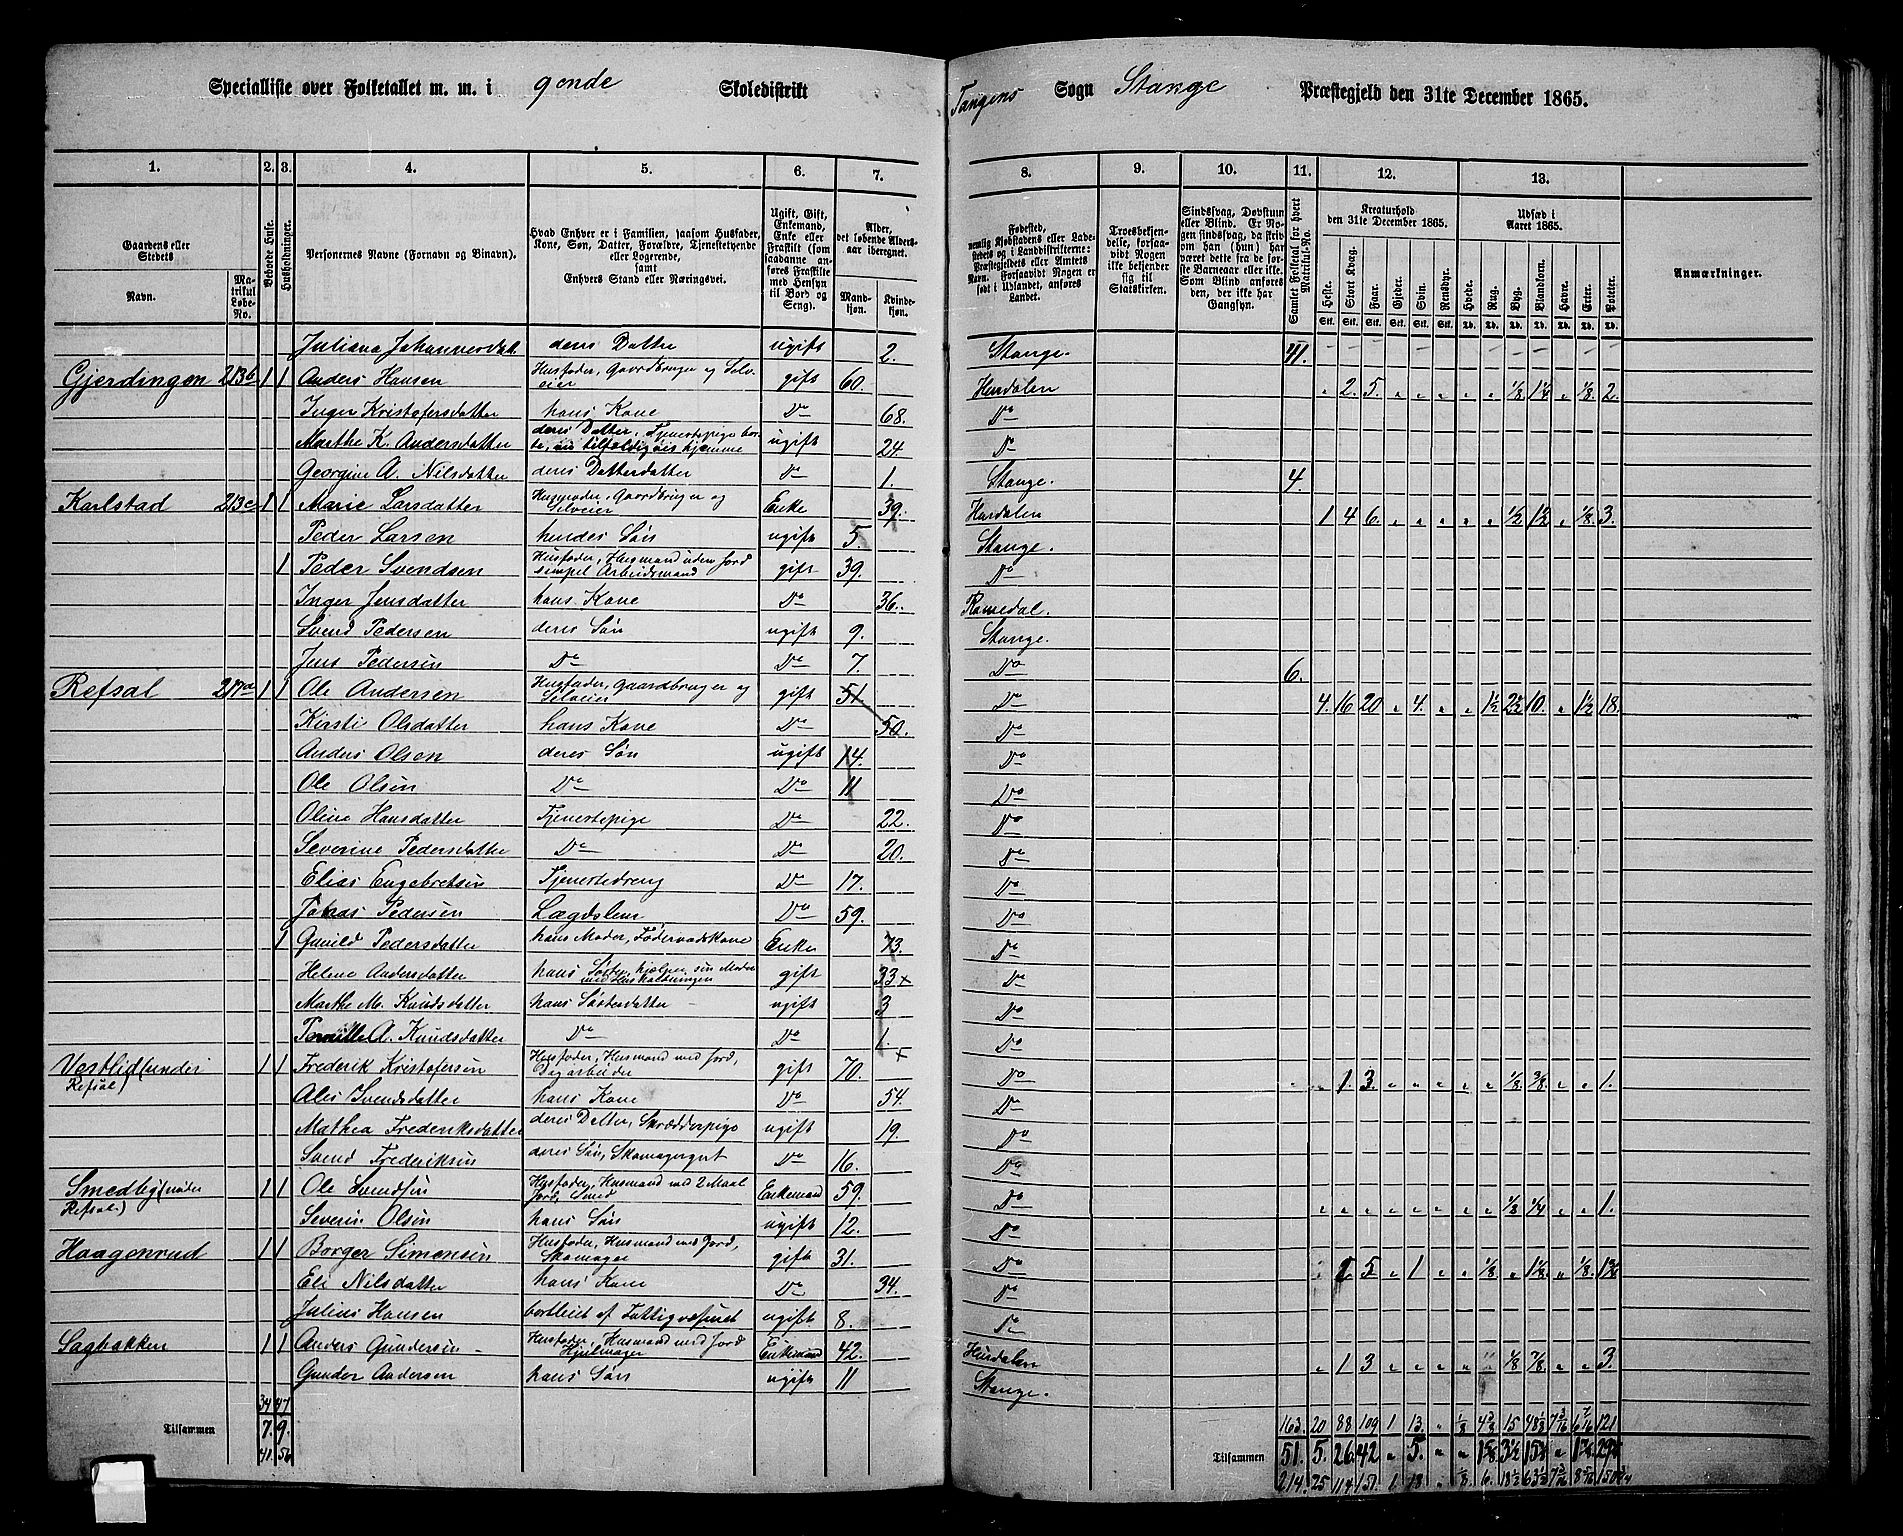 Specialliste over Folketallet m. m. i 9ende Skoledistrikt Tangens Sogn Stange Præstegjeld den 31te December 1865.
1. 2. 3. 4. 5. 6. 7. 8. 9. 10. 11. 12. 13.
Gaardens eller Stedets Navn. Matrikul Løbe-No. Beboede Huse. Husholdninger. Personernes Navne (Fornavn og Binavn).
Hvad Enhver er i Familien, saasom Husfader, Kone, Søn, Datter, Forældre, Tjenestetyende eller Logerende, samt Enhvers Stand eller Næringsvei.
Ugift, Gift, Enkemand, Enke eller Fraskilt (som saadanne anføres Fraskilte med Hensyn til Bord og Seng).
Alder, det løbende Aldersaar iberegnet. Mandkjøn. Kvindekjøn.
Fødested, nemlig Kjøbstadens eller Ladestedets og i Landdistrikterne: Præstegjeldets eller Amtets Navn. Forsaavidt Nogen er født i Udlandet, anføres Landet.
Troesbekjendelse, forsaavidt Nogen ikke bekjender sig til Statskirken.
Sindssvag, Døvstum eller Blind. Er Nogen sindssvag, da skrives om han (hun) har været dette fra de første Barneaar eller ikke. Som Blind anføres den, der ikke har Gangsyn.
Samlet Folketal for hvert Matrikul-No.
Kreaturhold den 31te December 1865. Heste. Stort Kvæg. Faar. Gjeder. Svin. Rensdyr.
Udsæd i Aaret 1865. Hvede. Rug. Byg. Blandkorn. Havre. Erter. Poteter.
Anmærkninger.
Juliana Johannesdat. deres Datter ugift 2. Stange. 41.
Gjerdingen 213b 1 1 Anders Hansen Husfader, Gaardbruger og Selveier gift 60. Hurdalen " 2. 5. " " " " " 1/8 1 1/4 " 1/8 2.
Inger Kristofersdatter hans Kone Do 68. Do
Marthe K. Andersdatter deres Datter, Tjenestepige borte, nu tilfældigvis hjemme ugift 24. Do
Georgine A. Nilsdatter deres Datterdatter Do 1. Stange. 4.
Karlstad 213c 1 1 Marie Larsdatter Husmoder, Gaardbruger og Selveier Enke 39. Hurdalen 1 4 6. " " " " " 1/2 1 1/2 " 1/8 3.
Peder Larsen hendes Søn ugift 5. Stange.
1 Peder Svendsen Husfader, Husmand uden Jord simpel Arbeidsmand gift 39. Do
Inger Jensdatter hans Kone Do 36. Romedal.
Svend Pedersen deres Søn ugift 9. Stange.
Jens Pedersen Do Do 7. Do 6.
Refsal 217a 1 1 Ole Andersen Husfader, Gaardbruger og Selveier gift 51 Do 4. 16 20 " 4. " " 1 1/2 2 1/2 10. " 1 1/2 18.
Kirsti Olsdatter hans Kone Do 50. Do
Anders Olsen deres Søn ugift 14. Do
Ole Olsen Do Do 11 Do
Oline Hansdatter Tjenestepige Do 22. Do
Severine Pedersdatter Do Do 20. Do
Elias Engebretsen Tjenestedreng Do 17. Do
Pedersen Lægdslem Do 59. Do
1 Gunild Pedersdatter hans Moder, Føderaadskone Enke 73. Do
Helene Andersdatter hans Søster, hjælper sin Moder med Husholdningen gift 33 x Do
Marthe M. Knudsdatter hans Søsterdatter ugift 3 Do
Pernille A. Knudsdatter Do Do 1. Do
Vestlid (under Refsal) 1 1 Frederik Kristofersen Husfader, Husmand med Jord, Dagarbeider gift 70. Do " 1. 3. " " " " " 1/8 3/8 " " 1.
Alis Svendsdatter hans Kone Do 54. Do
Mathea Frederiksdatter deres Datter, Skrædderpige ugift 19. Do
Svend Frederiksen deres Søn, Skomagergut Do 16. Do
Smedby (under Refsal) 1 1 Ole Svendsen Husfader, Husmand med 2 Maal Jord, Smed Enkemand 59. Do " " " " " " " " 1/8 1/4 " " 1.
Severin Olsen hans Søn ugift 12. Do
Haagenrud 1 1 Borger Simensen Husfader, Husmand med Jord, Skomager gift 31. Do 1 5 " 1 " " 1/8 " 1 1/8 " 1/8
Eli Nilsdatter hans Kone Do 34. Do
Julius Hansen bortleiet af Fattigvæsenet ugift 8. Do
Sagbakken 1 1 Anders Gundersen Husfader, Husmand med Jord Hjulmager Enkemand 42. Hurdalen " 1 3 " " " " " 1/8 7/8 " " 3.
Gunder Andersen hans Søn ugift 11 Stange.
34 47 163. 20 88 109 1 13. " 1/8 15 121
Tilsammen 7. 9. Tilsammen 51. 5. 26 42 " 5. " " 3 1/2
41. 56 214. 25 114 151. 1 18 " 1/8. 6. 18 1/2